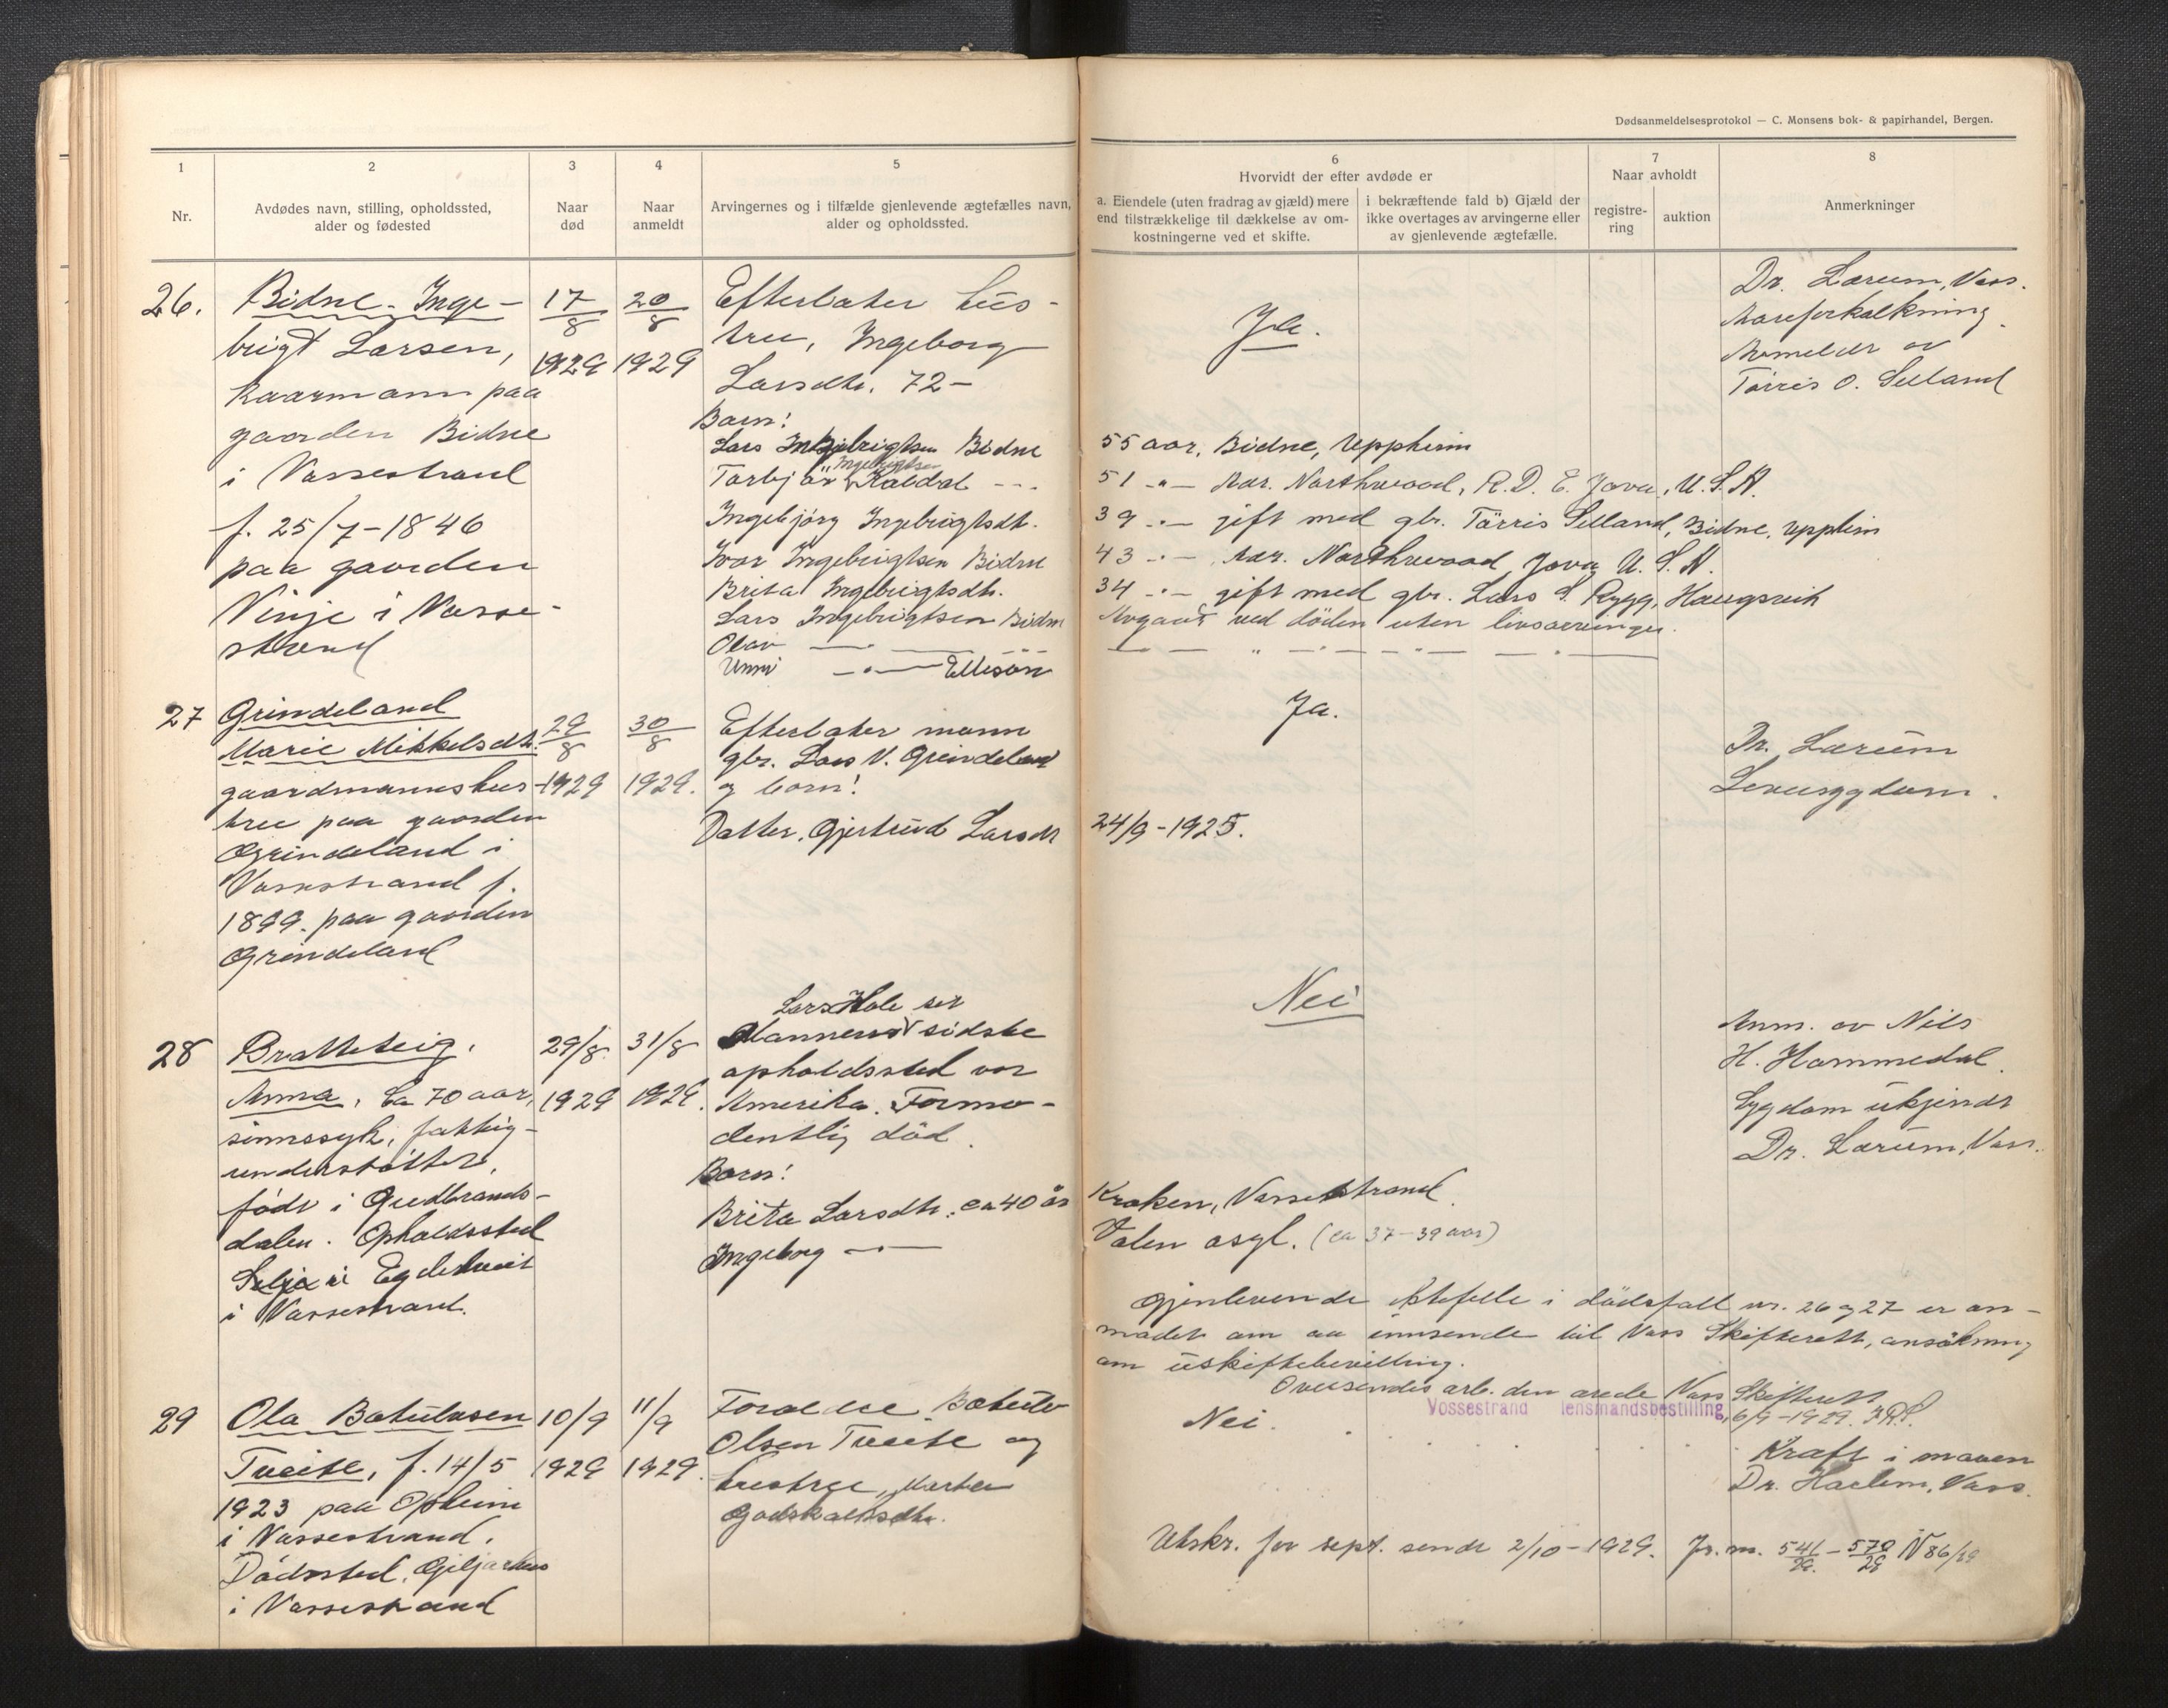 Dødsanmeldelsesprotokol — C. Monsens bok- & papirhandel, Bergen.
1
2
3
4
5
6
7
8
Nr.
Avdødes navn, stilling, opholdssted,
alder og fødested
Naar
død
Naar
anmeldt
Arvingernes og i tilfælde gjenlevende ægtefælles navn,
alder og opholdssted.
Hvorvidt der efter avdøde er
a. Eiendele (uten fradrag av gjæld) mere
end tilstrækkelige til dækkelse av om-
kostningerne ved et skifte.
i bekræftende fald b) Gjæld der
ikke overtages av arvingerne eller
av gjenlevende ægtefælle.
Naar avholdt
registre-
ring
auktion
Anmerkninger
26.
Bidne. Inge-
brigt Larsen,
kaarmann paa
gaarden Bidne
i Vossestrand
f. 25/7-1846
paa gaarden
Vinje i Vosse-
strand
17/8
1929
20/8
1929
Efterlater hus-
tru, Ingeborg
Larsdtr. 72-
Barn:
Lars Ingebrigtsen Bidne
Torbjör Ingebrigtsen Kaldal
Ingebjörg Ingebrigtsdt.
Ivar Ingebrigtsen Bidne
Brita Ingebrigtsdtr.
Lars Ingebrigtsen Bidne
Olav
Unni — " — Ellison
Ja.
55 aar, Bidne, Uppheim
51 -"- Adr. Northwood, R.D. E. Jova, U.S.A.
39 -"- gift med gbr. Tørris Selland, Bidne, Uppheim
43 -"- Adr. Northwood Jova U.S.A.
34 -"- gift med gbr. Lars S. Rygg, Haugsvik
Avgaat ved döden uten livsarvinger.
Dr. Lærum, Voss.
Aareforkalkning.
Anmeldt av
Tørris O. Selland
27
Grindeland
Marie Mikkelsdtr.
gaardmannshus-
tru paa gaarden
Grindeland i
Vossestrand f.
1899. paa gaarden
Grindeland
29/8
1929
30/8
1929.
Efterlater mann
gbr. Lars V. Grindeland
og barn:
Datter, Gjertrud Larsdt
Ja.
24/9-1925.
Dr. Lærum
Levesygdom.
28
Bratteteig.
Anna, ca 70 aar,
sinnssyk, fattig-
understöttet,
födt i Gudbrands-
dalen. Opholdssted
i Vossestrand.
29/8
1929
31/8
1929.
Lars Hole
Mannens sidste
opholdssted var
Amerika. Formo-
dentlig död.
Barn:
Brita Larsdtr. ca 40 år
Ingeborg — " —
Nei
Kroken, Vossestrand.
Valen asyl. (ca 37-39 aar)
Anm. av Nils
H. Hommedal.
Sygdom ukjendt
Dr. Lærum, Voss.
Gjenlevende i dödsfall nr. 26 og 27 er an-
modet om aa innsende til Voss Skifterett, ansökning
om uskiftebevilling.
Oversendes arb. den Voss Skifterett
Vossestrand lensmandsbestilling, 6/9-1929.
29
Ola Botulvsen
Tveite, f. 14/5
1923 paa Opheim
i Vossestrand.
Dödssted,
i Vossestrand
10/9
1929
11/9
1929.
Foreldre Botulv
Olsen Tveite og
hustru, Marta
Godskalksdtr.
Nei.
Kraft i maven
Dr. Voss.
Utskr. for sept. sendt 2/10-1929. Jr. nr. 541/29 - 570/29 N 86/29